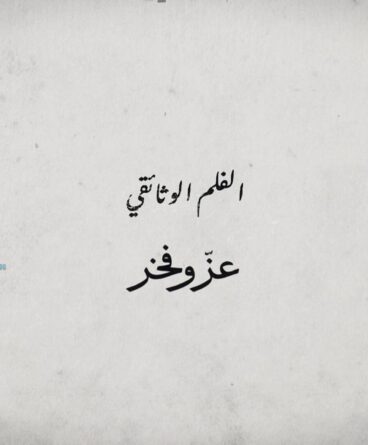 الفلم الوثائقي
عزّ وفخر